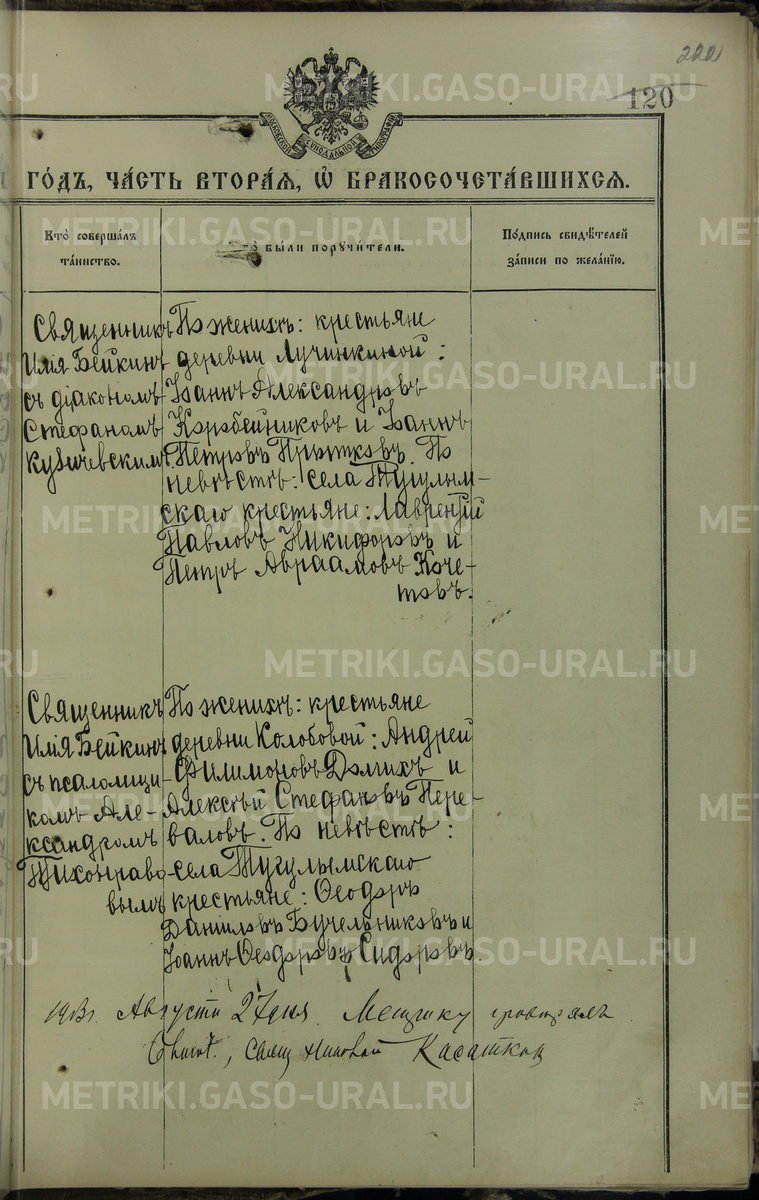 220
120
МОСКОВСКОЙ СѴНОДАЛЬНОЙ ТИПОГРАФІИ
ГО́ДЪ, ЧА́СТЬ ВТОРА́Я, Ѡ҆ БРАКОСОЧЕТА́ВШИХСЯ.
Кто̀ соверша́лъ
та́инство.
Кто̀ бы́ли порꙋчи́тели.
По́дпись свидѣ́телей
за́писи по жела́нїю.
Священникъ
Илія Бейкинъ
съ діакономъ
Стефаномъ
Кузичевскимъ.
По женихѣ: крестьяне
деревни Лучинкиной:
Іоаннъ Александровъ
Коробейниковъ и Іоаннъ
Петровъ Прытковъ. По
невѣстѣ: села Тугулым-
скаго крестьяне: Лаврентій
Павловъ Никифоровъ и
Петръ Авраамовъ Коче-
товъ.
Священникъ
Илія Бейкинъ
съ псаломщи-
комъ Але-
ксандромъ
Тихонраво-
вымъ
По женихѣ: крестьяне
деревни Колобовой: Андрей
Филимоновъ Долихъ и
Алексѣй Стефановъ Пере-
валовъ. По невѣстѣ:
села Тугулымскаго
крестьяне: Ѳеодоръ
Даниловъ Бучельниковъ и
Іоаннъ Ѳеодоровъ Сидоровъ.
Августа 27 дня. Метрику
свящ. Касаткин
METRIKI.GASO-URAL.RU